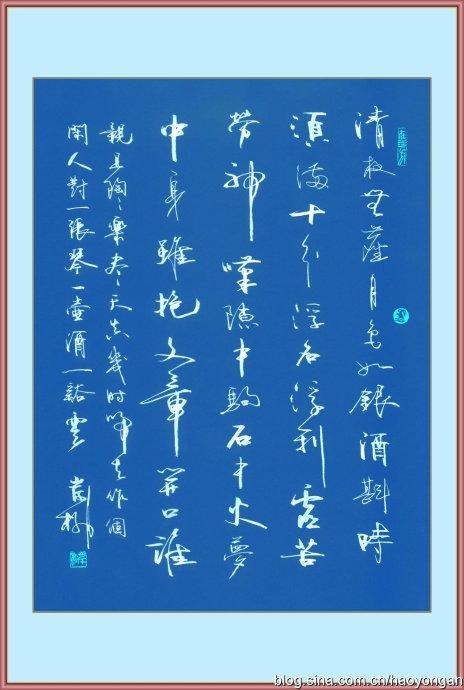 清夜無塵月色如銀酒斟時
須滿十分浮名浮利虚苦
勞神嘆隙中駒石中火夢
中身雖抱文章開口誰
親且陶々樂盡天真幾時歸去作個
閑人對一張琴一壺酒一谿雲
blog.sina.com.cn/haoyongan